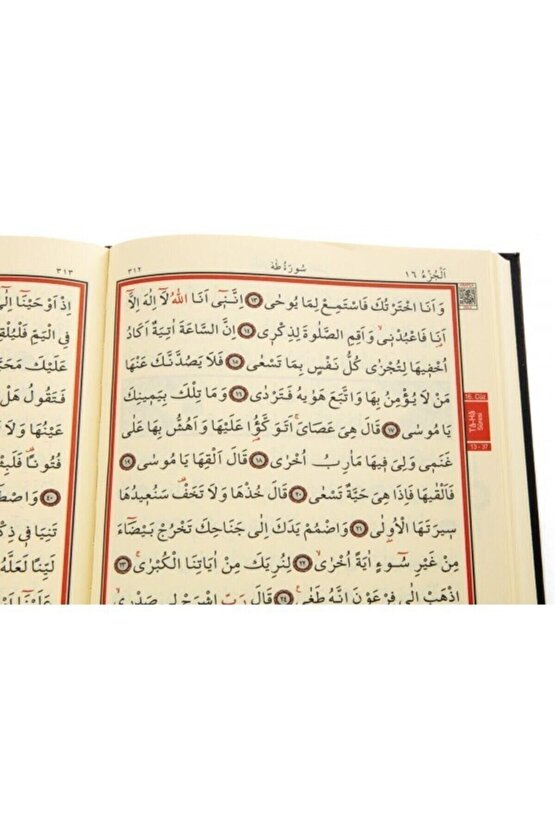 اَلْجُزْءُ ١٦
سُورَةُ طٰهٰ
٣١٢
وَاَنَا اخْتَرْتُكَ فَاسْتَمِعْ لِمَا يُوحٰى ﴿١٣﴾ اِنَّنٖٓي اَنَا اللّٰهُ لَٓا اِلٰهَ اِلَّٓا
اَنَا۬ فَاعْبُدْنٖي وَاَقِمِ الصَّلٰوةَ لِذِكْرٖي ﴿١٤﴾ اِنَّ السَّاعَةَ اٰتِيَةٌ اَكَادُ
اُخْفٖيهَا لِتُجْزٰى كُلُّ نَفْسٍ بِمَا تَسْعٰى ﴿١٥﴾ فَلَا يَصُدَّنَّكَ عَنْهَا
مَنْ لَا يُؤْمِنُ بِهَا وَاتَّبَعَ هَوٰيهُ فَتَرْدٰى ﴿١٦﴾ وَمَا تِلْكَ بِيَمٖينِكَ
يَا مُوسٰى ﴿١٧﴾ قَالَ هِيَ عَصَايَۚ اَتَوَكَّؤُ۬ا عَلَيْهَا وَاَهُشُّ بِهَا عَلٰى
غَنَمٖي وَلِيَ فٖيهَا مَاٰرِبُ اُخْرٰى ﴿١٨﴾ قَالَ اَلْقِهَا يَا مُوسٰى ﴿١٩﴾
فَاَلْقٰيهَا فَاِذَا هِيَ حَيَّةٌ تَسْعٰى ﴿٢٠﴾ قَالَ خُذْهَا وَلَا تَخَفْ۠ سَنُعٖيدُهَا
سٖيرَتَهَا الْاُو۫لٰى ﴿٢١﴾ وَاضْمُمْ يَدَكَ اِلٰى جَنَاحِكَ تَخْرُجْ بَيْضَٓاءَ
مِنْ غَيْرِ سُٓوءٍ اٰيَةً اُخْرٰىۙ ﴿٢٢﴾ لِنُرِيَكَ مِنْ اٰيَاتِنَا الْكُبْرٰىۚ ﴿٢٣﴾
اِذْهَبْ اِلٰى فِرْعَوْنَ اِنَّهُ طَغٰى۟ ﴿٢٤﴾ قَالَ رَبِّ اشْرَحْ لٖي صَدْرٖيۙ
16. Cüz
Tâ-Hâ
Sûresi
13 - 37
٣١٣
اِذْ اَوْحَيْنَٓا اِلٰٓى
فِي الْيَمِّ فَلْيُلْقِهِ
عَلَيْكَ مَحَبَّةً
فَتَقُولُ هَلْ
عَيْنُهَا وَلَا
فُتُونًا۠ فَلَبِثْتَ
﴿٤٠﴾ وَاصْطَنَعْتُكَ
تَنِيَا فٖي ذِكْرٖي
لَيِّنًا لَعَلَّهُ
عَلَيْنَٓا